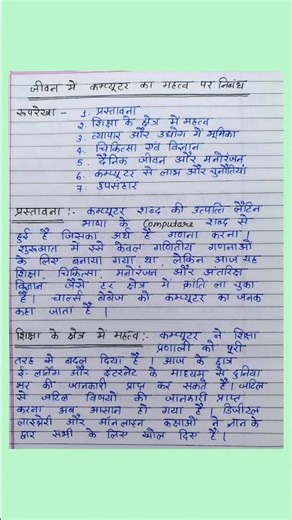 जीवन में कम्प्यूटर का महत्व पर निबंध
रूपरेखा - 1. प्रस्तावना
2. शिक्षा के क्षेत्र में महत्व
3. व्यापार और उद्योग में भूमिका
4. चिकित्सा एवं विज्ञान
5. दैनिक जीवन और मनोरंजन
6. कम्प्यूटर से लाभ और चुनौतियाँ
7. उपसंहार
प्रस्तावना :- कम्प्यूटर शब्द की उत्पत्ति लैटिन
भाषा के Computare शब्द से
हुई है जिसका अर्थ है गणना करना।
शुरुआत में इसे केवल गणितीय गणनाओं
के लिए बनाया गया था, लेकिन आज यह
शिक्षा, चिकित्सा, मनोरंजन और अंतरिक्ष
विज्ञान जैसे हर क्षेत्र में क्रांति ला चुका
है। चार्ल्स बैबेज को कम्प्यूटर का जनक
कहा जाता है।
शिक्षा के क्षेत्र में महत्व :- कम्प्यूटर ने शिक्षा
प्रणाली को पूरी
तरह से बदल दिया है। आज के छात्र
ई-लर्निंग और इंटरनेट के माध्यम से दुनिया
भर की जानकारी प्राप्त कर सकते हैं। जटिल
से जटिल विषयों की जानकारी प्राप्त
करना अब आसान हो गया है। डिजीटल
लाइब्रेरी और ऑनलाइन कक्षाओं ने ज्ञान के
द्वार सभी के लिए खोल दिए हैं।